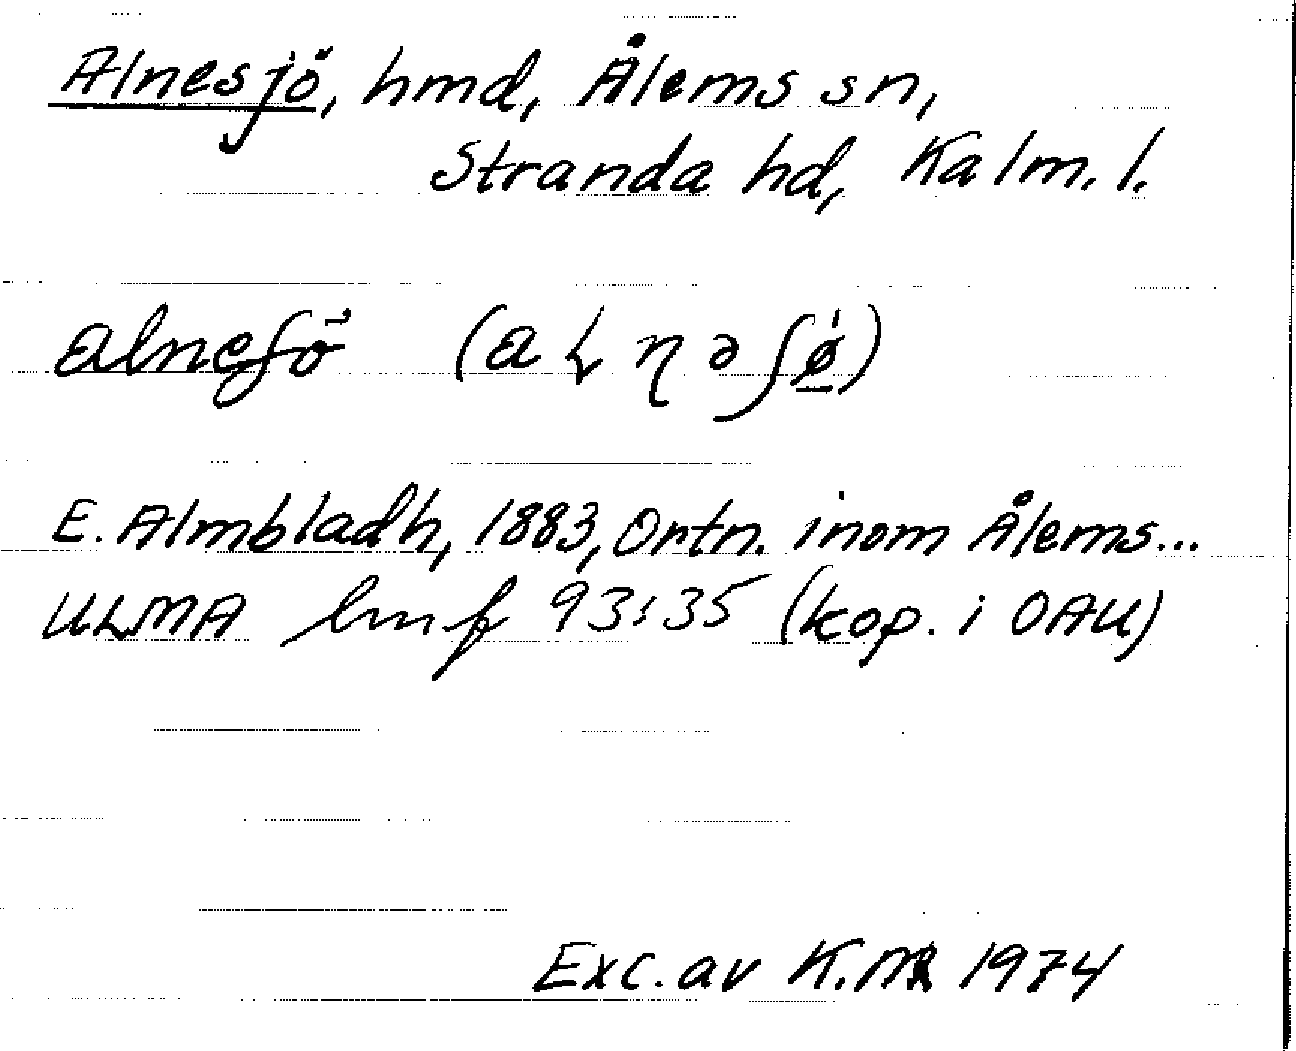 Alnesjö, hmd, Ålems sn,
Stranda hd, Kalm. l.
alneſö (a
E. Almbladh, 1883, Ortn. inom Ålems...
ULMA hmf 93:35 (kop. i OAU)
Exc. av K.M 1974